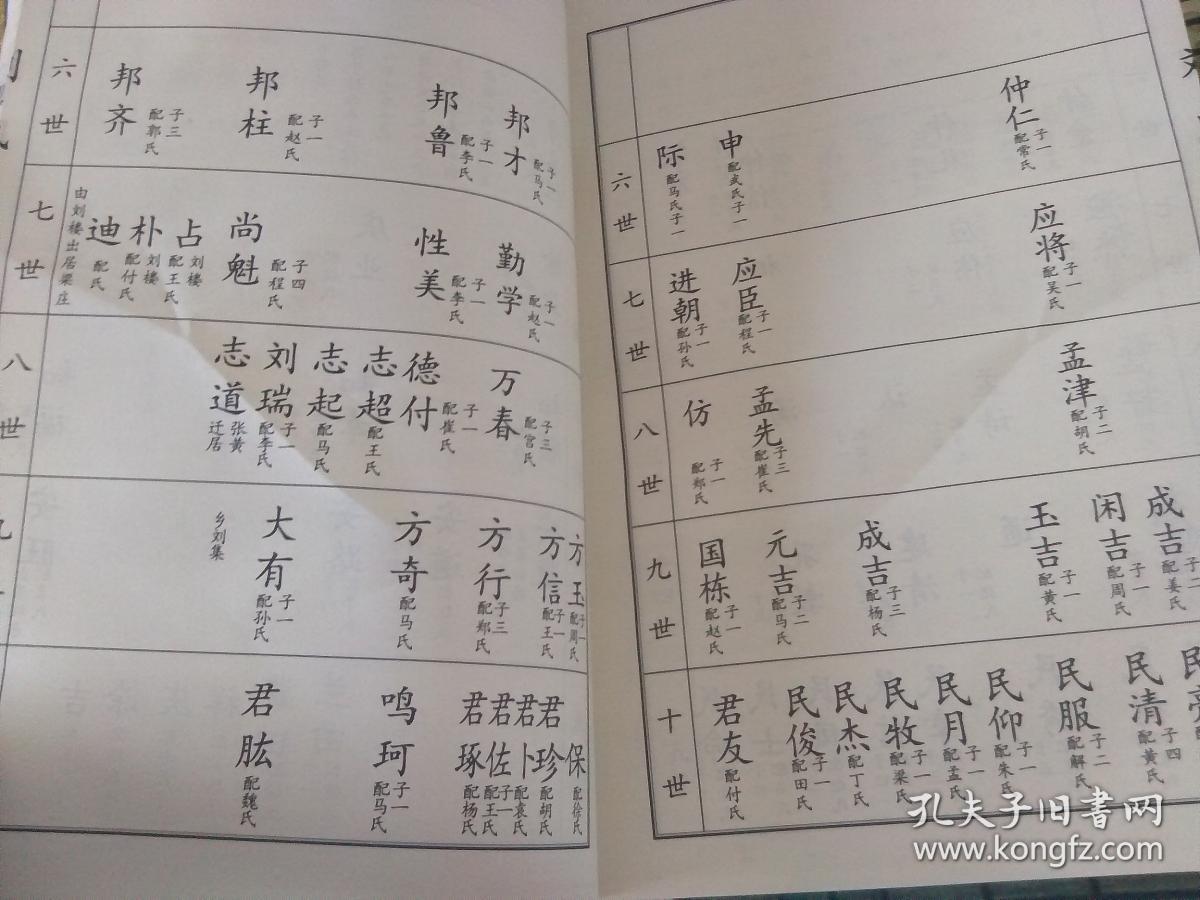 六世
仲仁 子一 配常氏
申 配武氏 子一
际 配马氏 子一
七世
应将 子一 配吴氏
应臣 子一 配程氏
进朝 子一 配孙氏
八世
孟津 子二 配胡氏
孟先 子三 配崔氏
仿 子一 配郑氏
九世
成吉 子二 配姜氏
闲吉 子一 配周氏
玉吉 子一 配黄氏
成吉 子三 配杨氏
元吉 子二 配马氏
国栋 子一 配赵氏
十世
民清 子四 配黄氏
民服 子二 配解氏
民仰 子一 配朱氏
民月 子一 配孟氏
民牧 子一 配梁氏
民杰 配丁氏
民俊 子一 配田氏
君友 配付氏
六世
邦才 子一 配马氏
邦鲁 子一 配李氏
邦柱 子一 配赵氏
邦齐 子三 配郭氏
七世
勤学 子一 配赵氏
性美 子一 配李氏
尚魁 子四 配程氏
占 刘楼 配王氏
朴 刘楼 配付氏
迪 配氏
由刘楼出居梁庄
八世
万春 子三 配宫氏
德付 子一 配崔氏
志超 配王氏
志起 配马氏
刘瑞 子一 配李氏
志道 张黄 迁居
九
方玉 子一 配周氏
方信 子一 配王氏
方行 子三 配郑氏
方奇 配马氏
大有 子一 配孙氏
乡刘集
保 配徐氏
君珍 配胡氏
君卜 配袁氏
君佐 子一 配王氏
君琢 配杨氏
鸣珂 子一 配马氏
君肱 配魏氏
孔夫子旧书网
www.kongfz.com